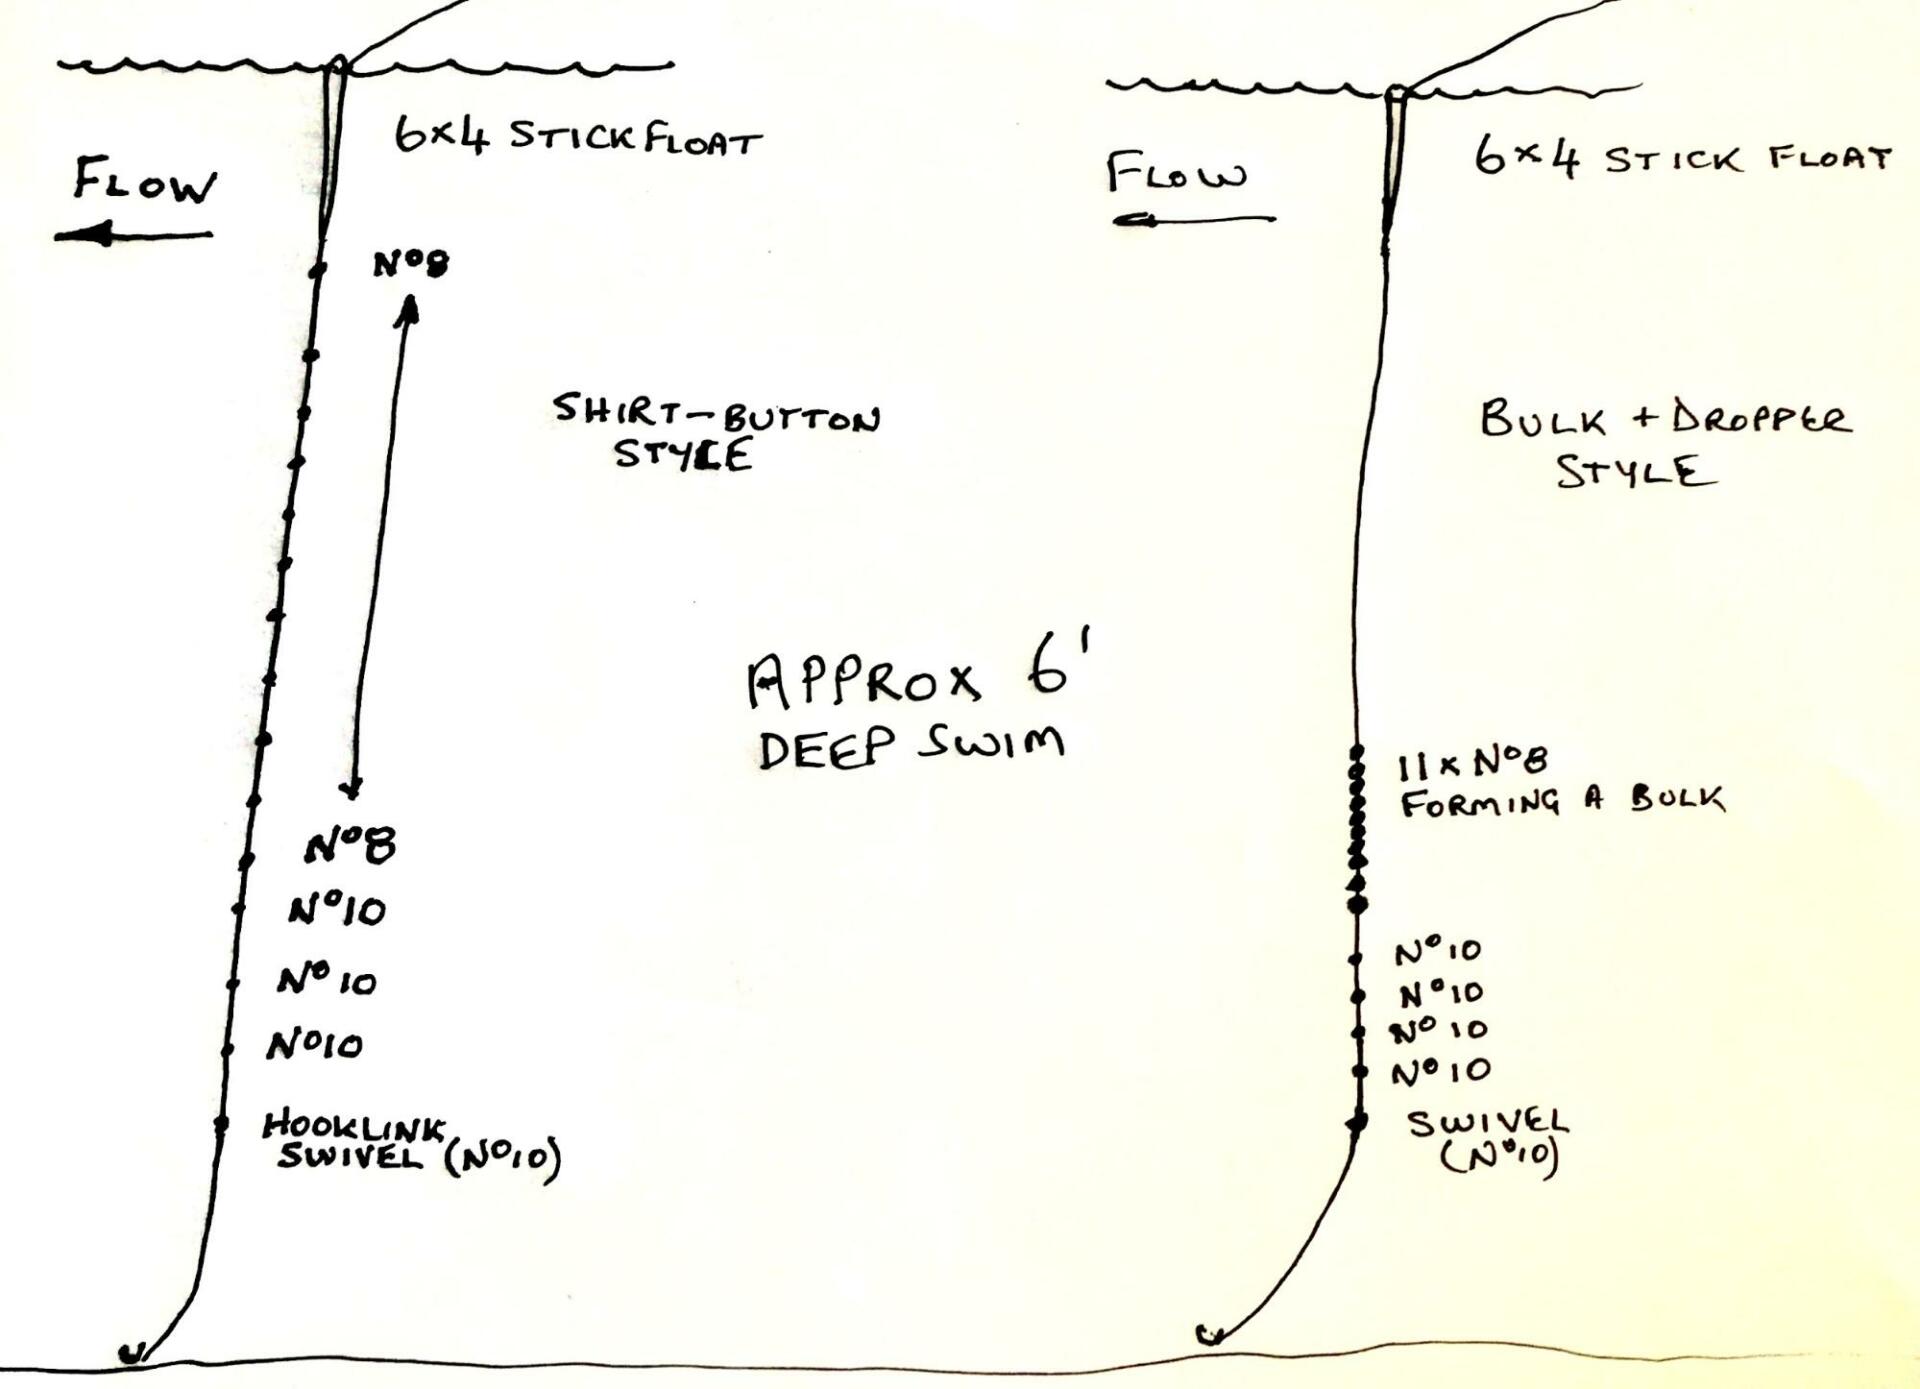 6×4 STICK FLOAT
FLOW
Nº8
SHIRT-BUTTON
STYLE
Nº8
Nº10
Nº10
Nº10
HOOKLINK
SWIVEL (Nº10)
APPROX 6'
DEEP SWIM
6×4 STICK FLOAT
FLOW
BULK + DROPPER
STYLE
11× Nº8
FORMING A BULK
Nº10
Nº10
Nº10
Nº10
SWIVEL
(Nº10)